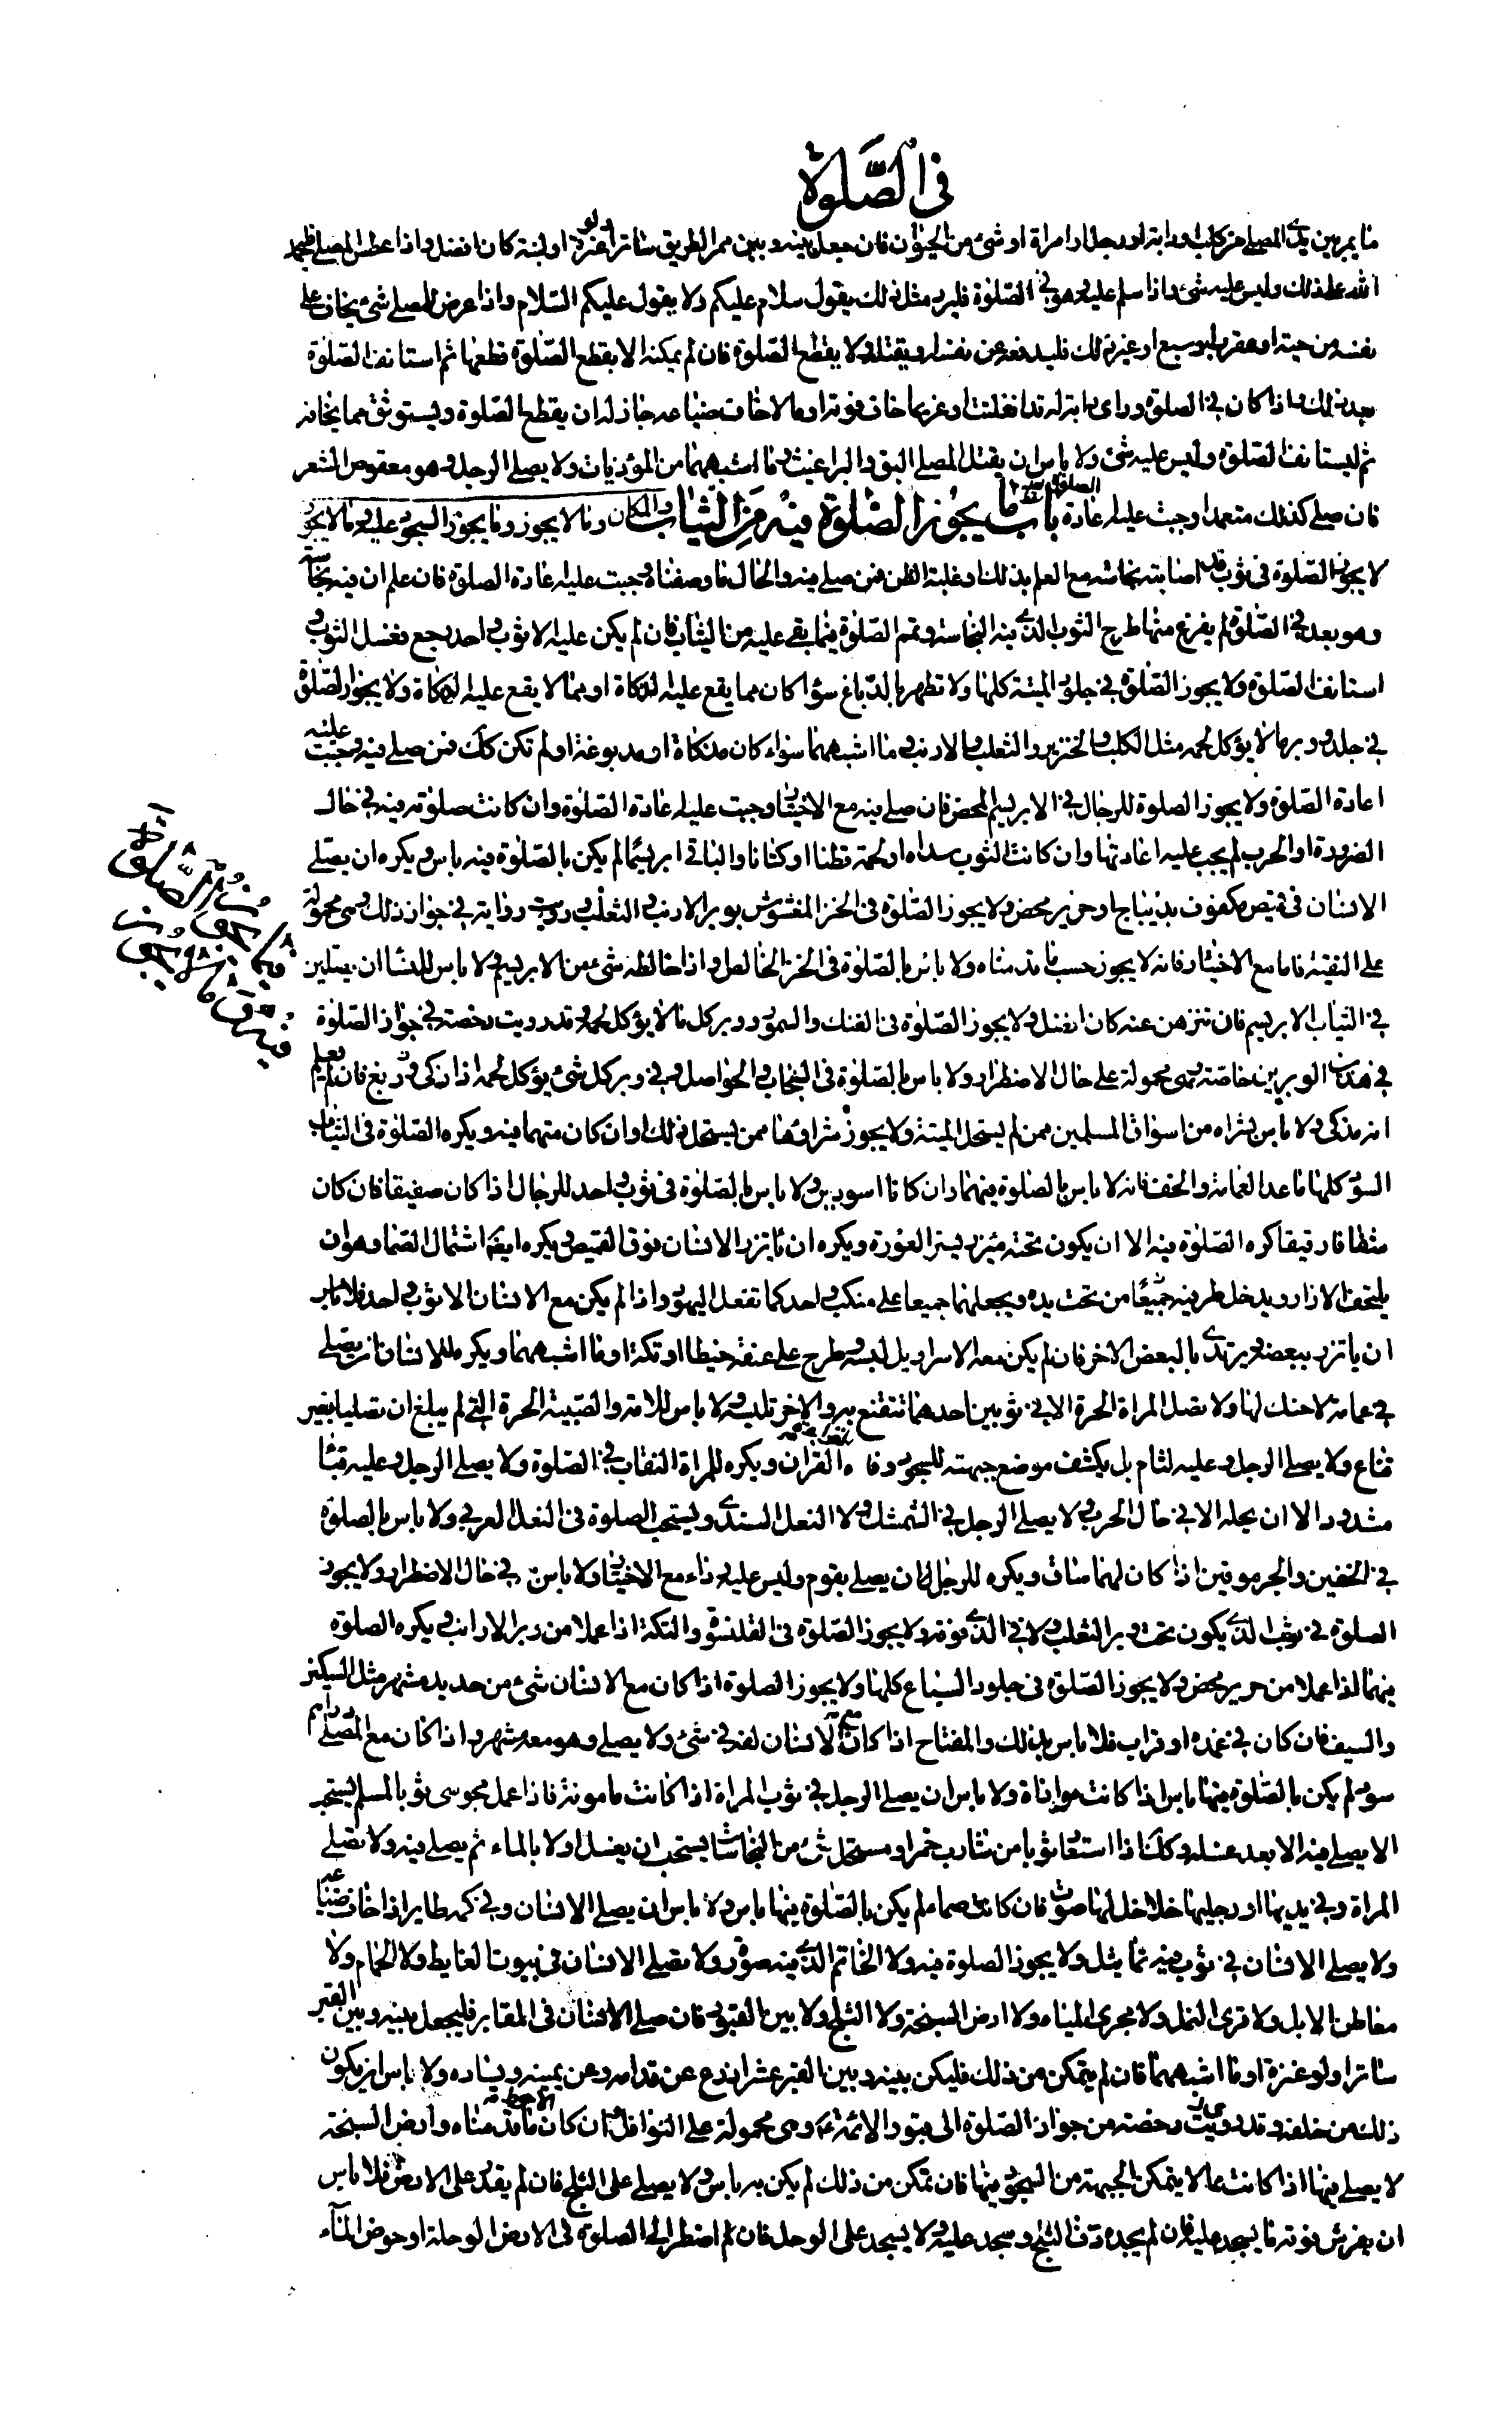 في الصّلوة
ما يمر بين يدي المصلي من كلب او دابة او رجل او امراة او شئ من الحيوان فان جعل بينه وبين ممر الطريق ساترا ولو عنزة او لبنة كان افضل واذا عطس المصلي فليحمد
الله على ذلك وليس عليه شئ واذا سلم عليه وهو في الصّلوة فليرد مثل ذلك يقول سلام عليكم ولا يقول عليكم السّلام واذا عرض للمصلي شئ يخاف على
نفسه من حية او عقرب او سبع او غير ذلك فليدفعه عن نفسه او يقتله ولا يقطع الصّلوة فان لم يمكنه الا بقطع الصّلوة قطعها ثم استانف الصّلوة
بعد ذلك واذا كان في الصلوة وراى دابة له قد انفلتت او غريما خاف فوته او مالا خاف ضياعه جاز له ان يقطع الصّلوة ويستوثق مما يخافه
ثم ليستانف الصّلوة وليس عليه شئ ولا باس ان يقتل المصلي البق والبراغيث وما اشبههما من المؤذيات ولا يصلي الرجل وهو معقوص الشعر
فان صلى كذلك متعمدا وجبت عليه اعادة الصلوة باب ما يجوز الصّلوة فيه من الثياب والمكان وما لا يجوز وما يجوز السجود عليه وما لا يجوز
لا يجوز الصّلوة في ثوب قد اصابته نجاسة مع العلم بذلك او غلبة الظن فمن صلى فيه والحال ما وصفناه وجبت عليه اعادة الصلوة فان علم ان فيه نجاسة
وهو بعد في الصّلوة لم يفرغ منها طرح الثوب الذي فيه النجاسة وتمم الصّلوة فيما بقي عليه من الثياب فان لم يكن عليه الا ثوب واحد رجع فغسل الثوب و
استانف الصّلوة ولا يجوز الصّلوة في جلود الميتة كلها ولا تطهر بالدّباغ سواء كان مما يقع عليه الذكاة او مما لا يقع عليه الذكاة ولا يجوز الصّلوة
في جلد ووبر ما لا يؤكل لحمه مثل الكلب والخنزير والثعلب والارنب وما اشبههما سواء كان مذكاة او مدبوغة او لم تكن كذلك فمن صلى فيه وجبت عليه
اعادة الصّلوة ولا يجوز الصلوة للرجال في الابريسم المحض فان صلى فيه مع الاختيار وجبت عليه اعادة الصّلوة وان كانت صلوته فيه في حال
الضرورة او الحرب لم يجب عليه اعادتها وان كانت الثوب سداه او لحمته قطنا او كتانا والباقي ابريسما لم يكن بالصّلوة فيه باس ويكره ان يصلي
الانسان في قميص مكفوف بديباج او حرير محض ولا يجوز الصّلوة في الخز المغشوش بوبر الارنب والثعلب ورويت رواية في جواز ذلك وهي محمولة
على التقية فاما مع الاختيار فانه لا يجوز حسب ما قدمناه ولا باس بالصّلوة في الخز الخالص واذا خالطه شئ من الابريسم ولا باس للنساء ان يصلين
في الثياب الابريسم فان تنزهن عنه كان افضل ولا يجوز الصّلوة في الفنك والسمور ووبر كل ما لا يؤكل لحمه وقد رويت رخصة في جواز الصّلوة
في هذين الوبرين خاصة وهي محمولة على حال الاضطرار ولا باس بالصّلوة في السنجاب والحواصل وفي وبر كل شئ يؤكل لحمه اذا ذكى ودبغ فان لم يعلم
انه مذكى ولا باس بشراه من اسواق المسلمين ممن لم يستحل الميتة ولا يجوز شراؤها ممن يستحل ذلك او ان كان متهما فيه ويكره الصّلوة في الثياب
السود كلها ما عدا العمامة والخف فانه لا باس بالصّلوة فيهما وان كانا اسودين ولا باس بالصّلوة في ثوب واحد للرجال اذا كان صفيقا فان كان
شفافا رقيقا كره الصّلوة فيه الا ان يكون تحته ميزر يستر العورة ويكره ان ياتزر الانسان فوق القميص ويكره ايضا اشتمال الصّما وهو ان
يلتحف بالازار ويدخل طرفيه جميعا من تحت يده ويجعلهما جميعا على منكب واحد كما تفعل اليهود واذا لم يكن مع الانسان الا ثوب واحد فلا باس
ان ياتزر ببعضه ويرتدي بالبعض الاخر فان لم يكن معه الا سراويل لبسه وطرح على عنقه خيطا او تكة او ما اشبههما ويكره للانسان ان يصلي
في عمامة لا حنك لها ولا تصل المراة الحرة الا في ثوبين احدهما تتقنع به والاخر تلبسه ولا باس للامة والصّبية الحرة التي لم يبلغ ان تصليا بغير
قناع ولا يصلي الرجل وعليه لثام بل يكشف موضع جبهته للسجود وفاه لقراءة القرآن ويكره للمراة النقاب في الصّلوة ولا يصلي الرجل وعليه قبا
مشدود الا ان يحله الا في حال الحرب ولا يصلي الرجل في الشمشك ولا النعل السندي ويستحب الصلوة في النعل العربي ولا باس بالصلوة
في الخفين والجرموقين اذا كان لهما ساق ويكره للرجل ان يصلي بقوم وليس عليه رداء مع الاختيار ولا باس في حال الاضطرار ولا يجوز
الصلوة في ثوب الذي يكون تحت وبر الثعلب ولا في الذي فوقه ولا يجوز الصّلوة في القلنسوة والتكة اذا عملا من وبر الارانب ويكره الصلوة
فيهما اذا عملا من حرير محض ولا يجوز الصّلوة في جلود السباع كلها ولا يجوز الصلوة اذا كان مع الانسان شئ من حديد مشهر مثل السكين
والسيف فان كان في غمده او قراب فلا باس بذلك والمفتاح اذا كان مع الانسان لفه في شئ ولا يصلي وهو معه مشهر واذا كان مع المصلي دراهم
سود لم يكن بالصّلوة فيها باس اذا كانت مواراة ولا باس ان يصلي الرجل في ثوب المراة اذا كانت مامونة فاذا عمل مجوسي ثوبا لمسلم يستحب
الا يصلي فيه الا بعد غسله وكذلك اذا استعار ثوبا من شارب خمر او مستحل شئ من النجاسات يستحب ان يغسل اولا بالماء ثم يصلي فيه ولا تصلي
المراة وفي يديها او رجليها خلاخل لها صوت فان كانت صماء لم يكن بالصّلوة فيها باس ولا باس ان يصلي الانسان وفي كمه طاير اذا خاف ضياعه
ولا يصلي الانسان في ثوب فيه تماثيل ولا يجوز الصلوة فيه ولا الخاتم الذي فيه صورة ولا يصلي الانسان في بيوت الغايط ولا الحمام ولا
معاطن الابل ولا قرى النمل ولا مجرى المياه ولا ارض السبخة ولا الثلج ولا بين القبور فان صلى الانسان في المقابر فليجعل بينه وبين القبر
ساترا ولو عنزة او ما اشبههما فان لم يتمكن من ذلك فليكن بينه وبين القبر عشر اذرع عن قدامه وعن يمينه ويساره ولا باس ان يكون
ذلك من خلفه وقد رويت رخصة من جواز الصّلوة الى قبور الائمة ع وهي محمولة على النوافل وان كان الاحوط ما قدمناه وارض السبخة
لا يصلي فيها اذا كانت مما لا يتمكن الجبهة من السجود فيها فان تمكن من ذلك لم يكن به باس ولا يصلي على الثلج فان لم يقدر على الارض فلا باس
ان يفرش فوقه ما يسجد عليه فان لم يجد دق الثلج وسجد عليه ولا يسجد على الوحل فان لم اضطر الى الصلوة في الارض الوحلة او حوض الماء